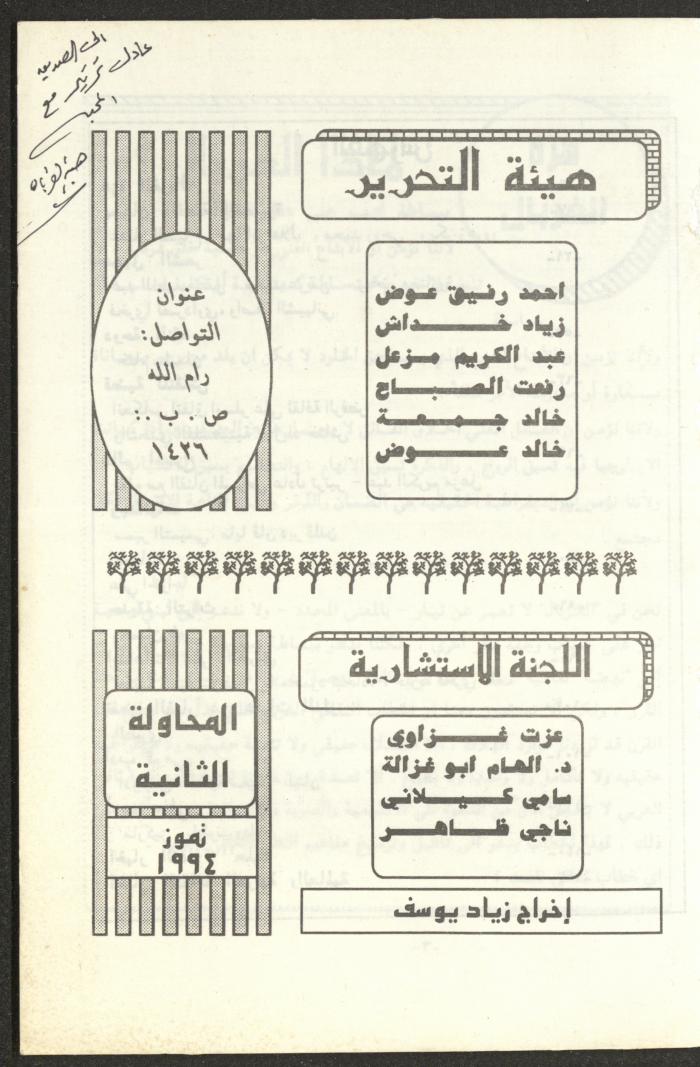 الى الصديق
عادل ترتير مع
المحبة
هيئة التحرير
احمد رفيق عوض
زياد خـــداش
عبد الكريم مزعل
رفعت الصبـــاح
خالد جمـــعـــة
خالد عـــوض
عنوان
التواصل:
رام الله
ص . ب . :
١٤٢٦
اللجنة الاستشارية
عزت غـــزاوي
د. الهام ابو غزالة
سامي كـــيـــلاني
ناجي ظـــاهـــر
إخراج زياد يوسف
المحاولة
الثانية
تموز
١٩٩٤